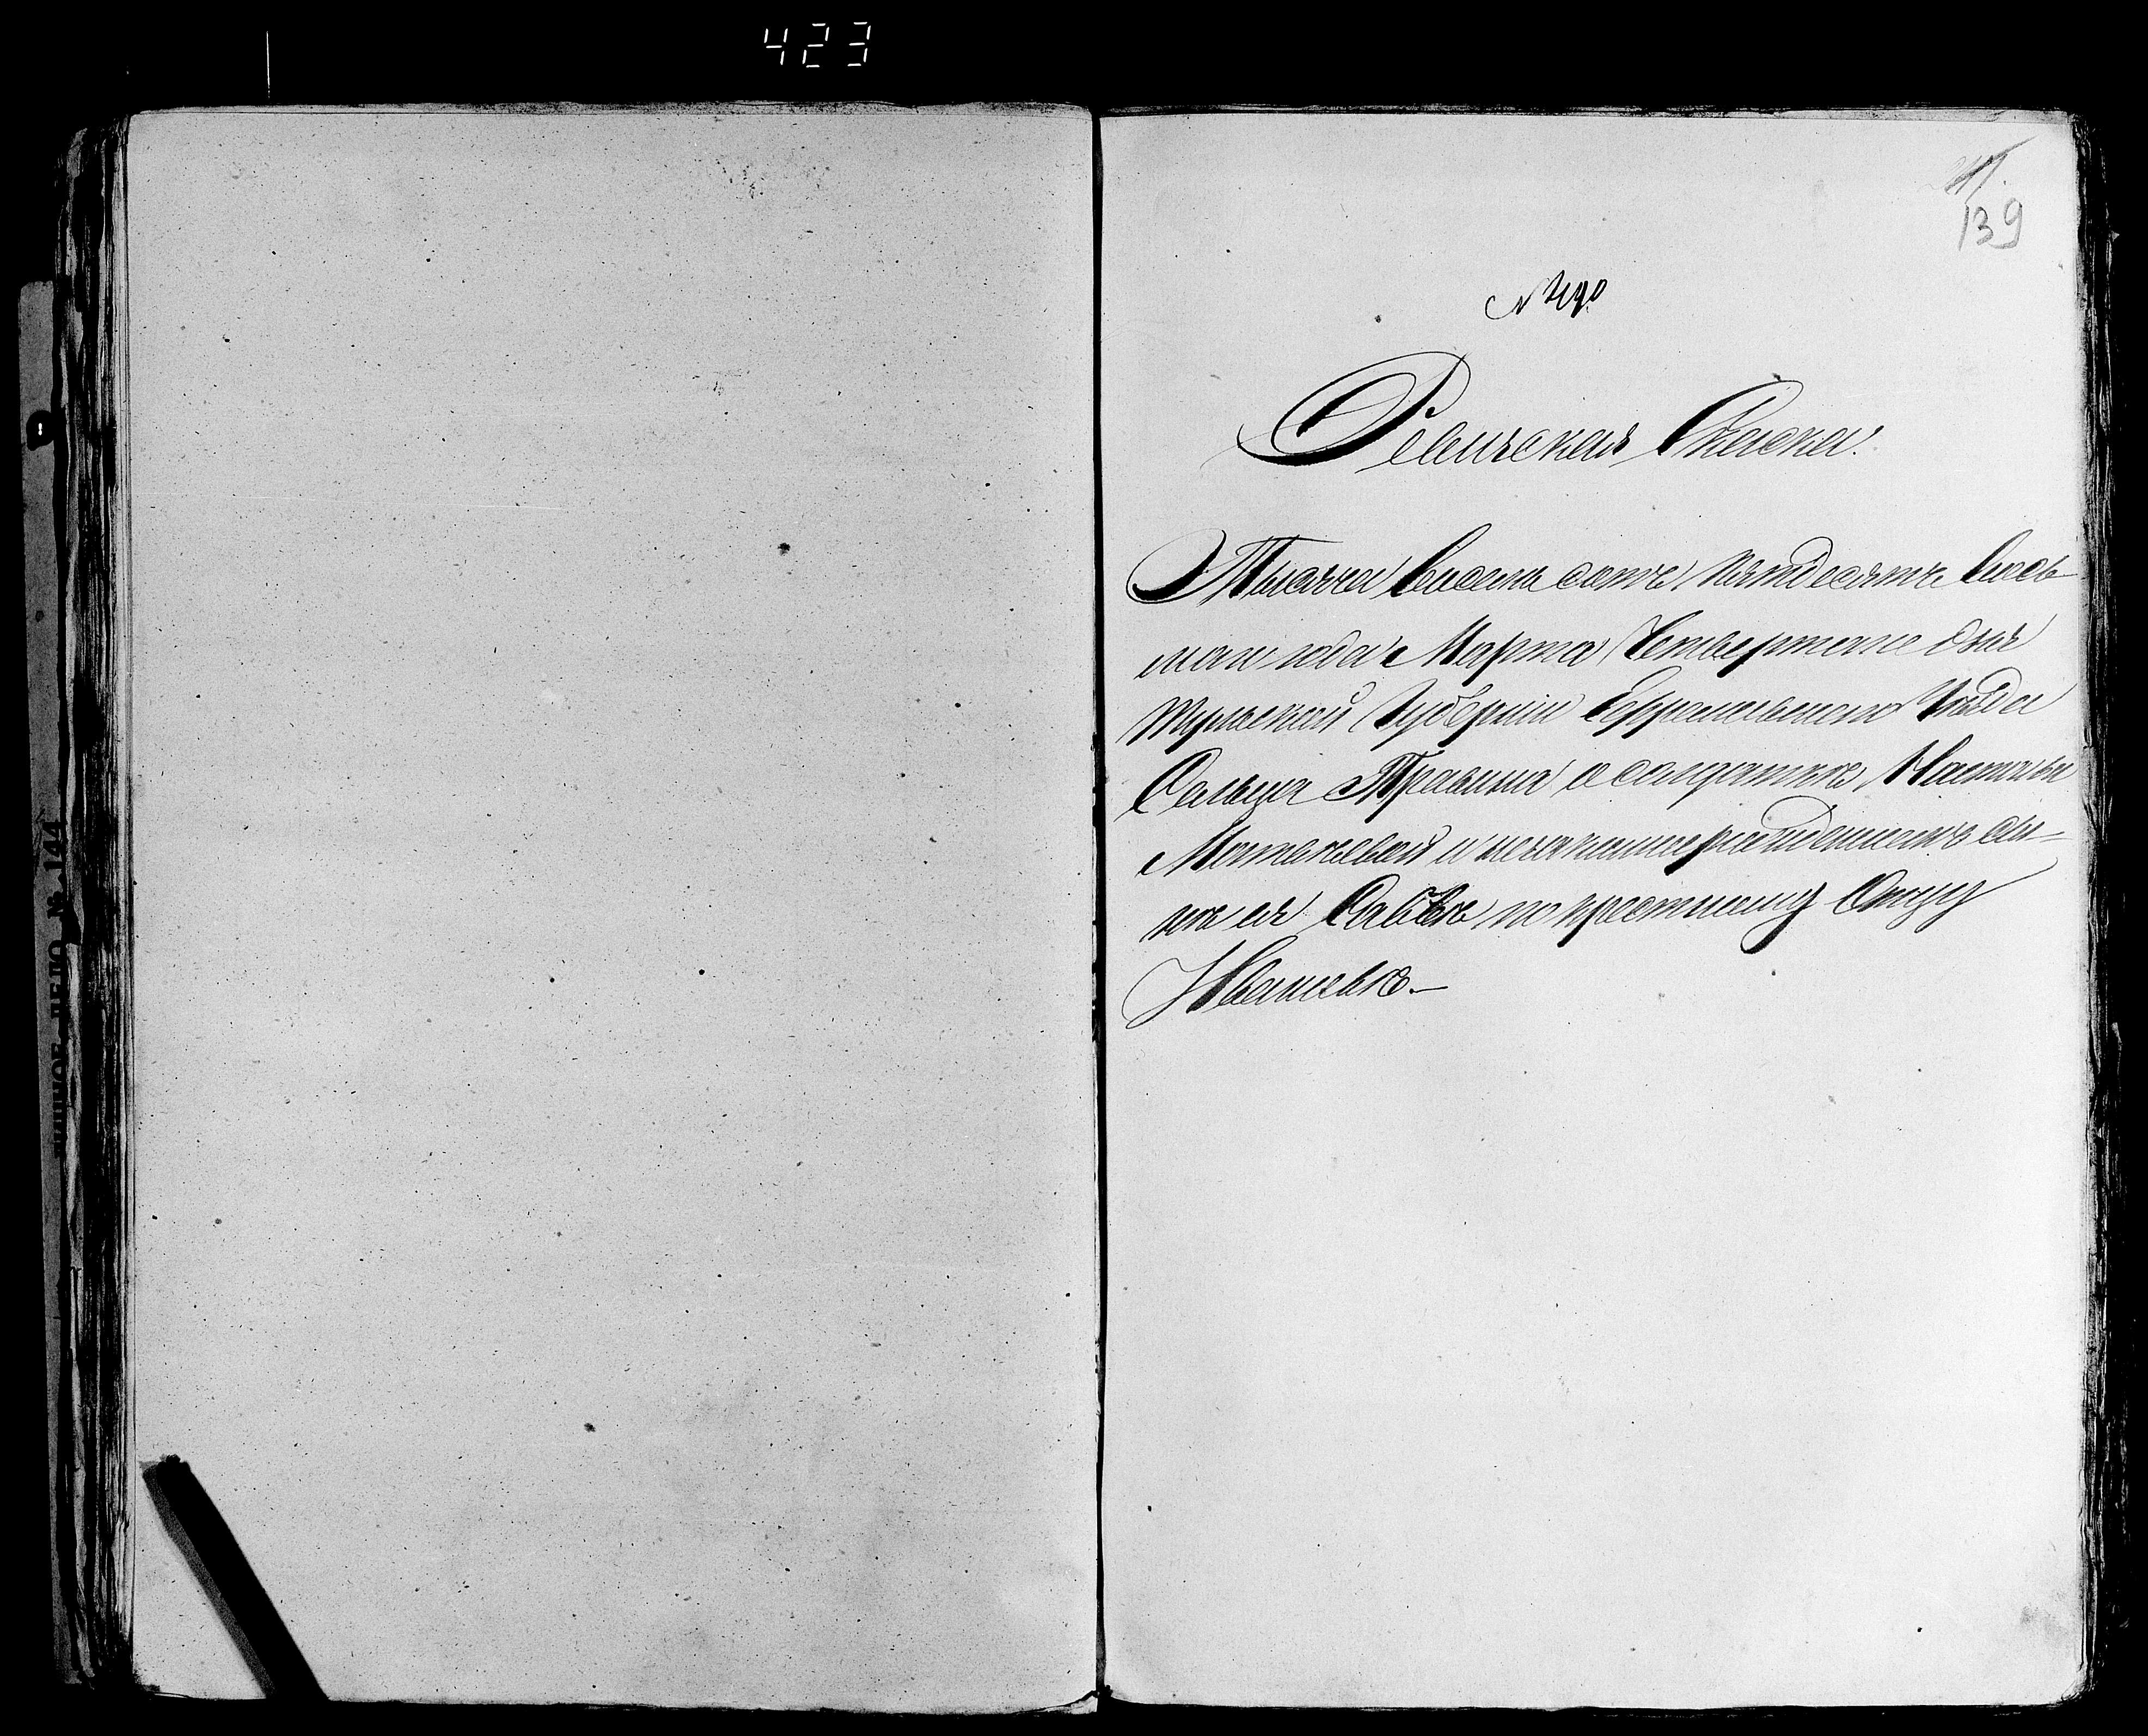 423
139
Ревизская Сказка.
Тысяча Восемь сотъ пятдесятъ Вось-
маго года Марта Четвертаго дня
Тульской Губерніи Ефремовскаго Уѣзда
Сельца Травина о солдаткѣ Настасьи
Матвѣевой и незаконнорожденномъ сы-
нѣ ея Савѣ по крестному Отцу
Ивановѣ.—
ДЕЛО № 144